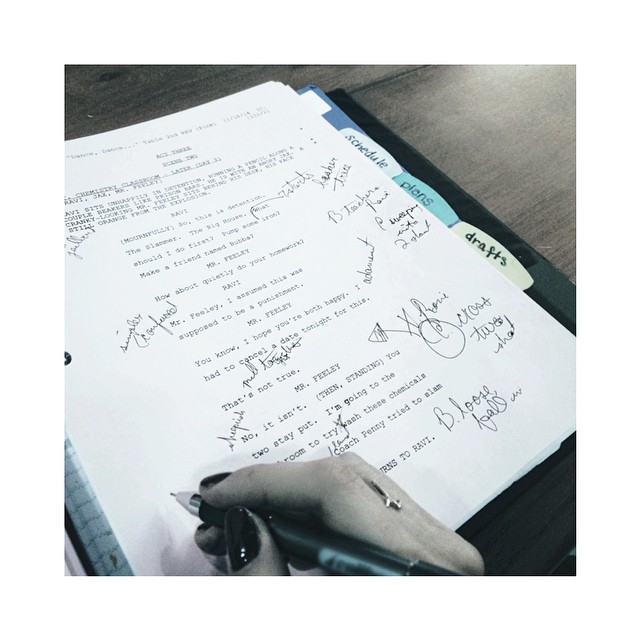 "Dance, Dance..." Table
ACT THREE
SCENE TWO
CHEMISTRY CLASSROOM - LATER (DAY 3)
RAVI, JAX, MR. FEELEY
RAVI SITS UNHAPPILY IN DETENTION, RUNNING A PENCIL ALONG A
COUPLE BEAKERS LIKE PRISON BARS. HE IS WITH AN ANGRY JAX. A
CRANKY-LOOKING MR. FEELEY SITS BEHIND HIS DESK, HIS FACE
STILL ORANGE FROM THE EXPLOSION.
RAVI
(MOURNFULLY) So, this is detention.
The Slammer. The Big House. What
should I do first? Pump some iron?
Make a friend named Bubba?
MR. FEELEY
How about quietly do your homework?
RAVI
Mr. Feeley, I assumed this was
supposed to be a punishment.
MR. FEELEY
You know, I hope you're both happy. I
had to cancel a date tonight for this.
That's not true.
MR. FEELEY
No, it isn't. (THEN, STANDING) You
two stay put. I'm going to the
room to try wash these chemicals
Coach Penny tried to slam
RNS TO RAVI.
adamant
sheepish
B. loose
cross
two
shot
schedule
plans
drafts